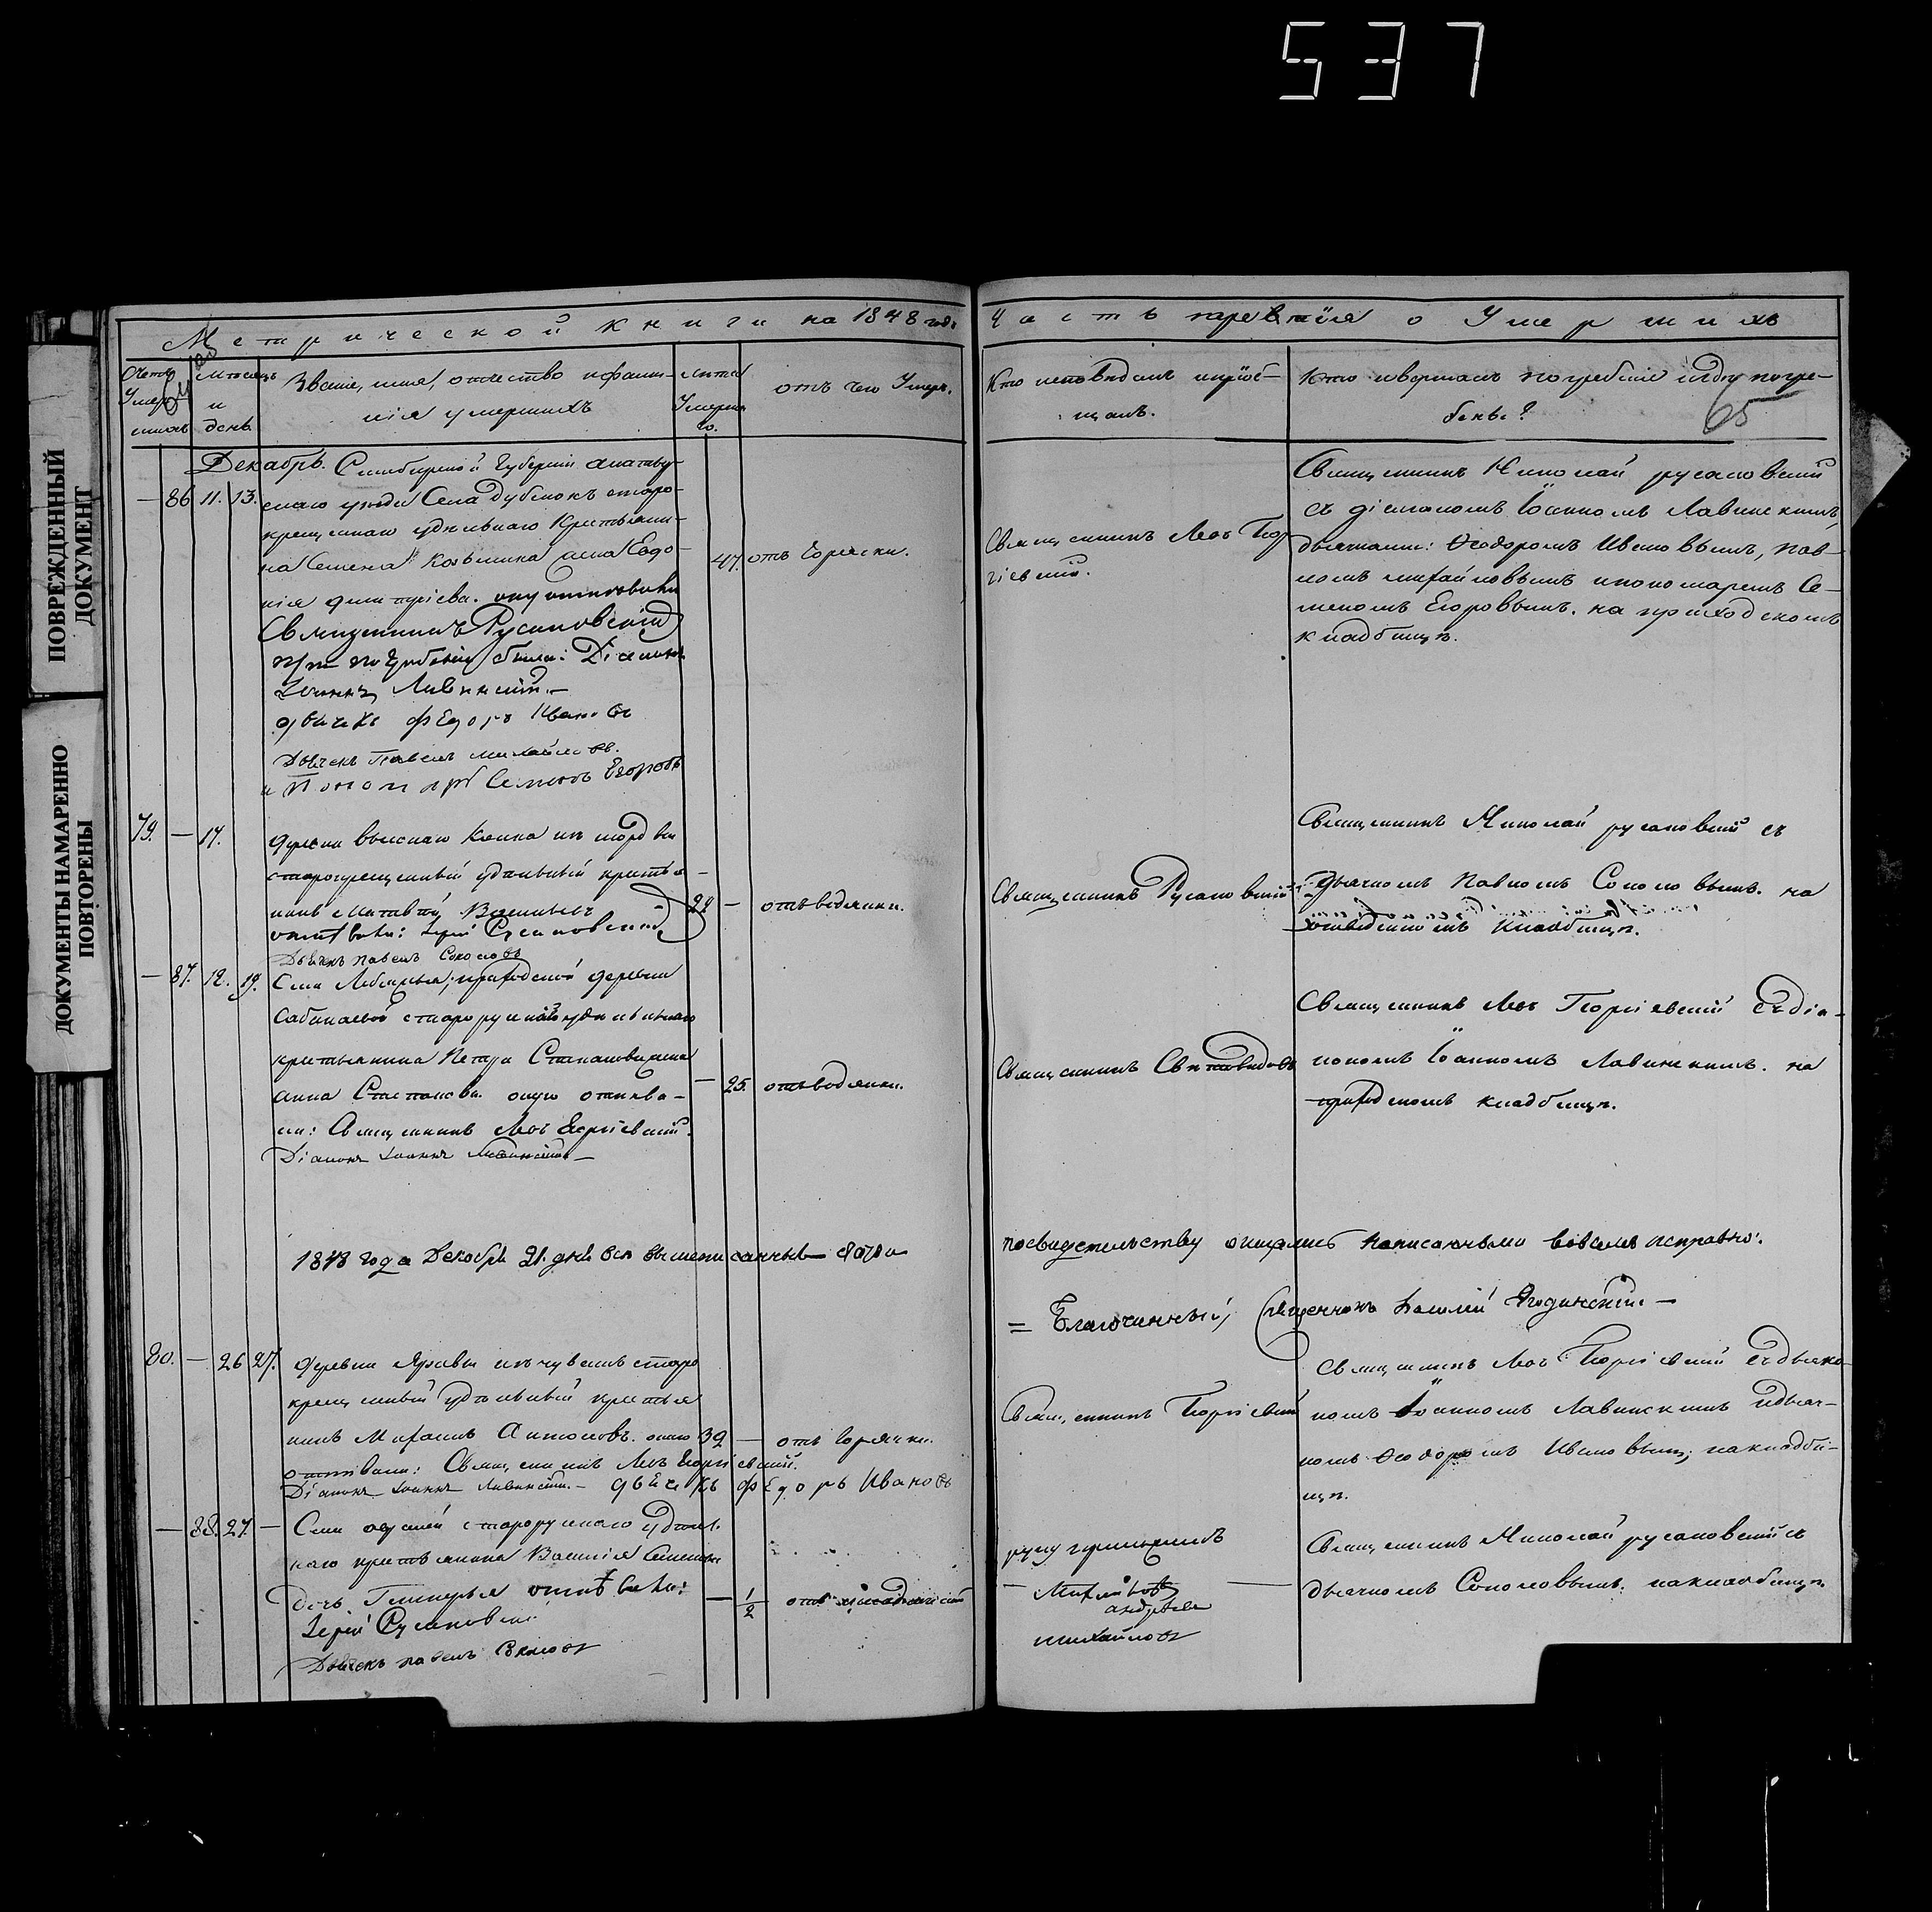 537
ПОВРЕЖДЕННЫЙ ДОКУМЕНТ
ДОКУМЕНТЫ НАМАРЕННО ПОВТОРЕНЫ
Метрической книги на 1848 годъ
Часть третія о Умершихъ
Счетъ Умершихъ
Мѣсяцъ и день
Званіе, имя, отчество и фами-
лія умершихъ
Лѣта Умершаго.
отъ чего Умеръ.
Кто исповѣдалъ и пріоб-
щалъ.
Кто совершалъ погребеніе и гдѣ погре-
бены?
65
Декабрь. Симбирской Губерніи
— 86 11. 13.
снаго уѣзда Села Дубенокъ старо-
крещеннаго удѣльнаго Крестьяни-
на Семена Козьмина жена Евдо-
кія Дмитріева. ону отпѣвали
Священникъ Русановскій
при погребеніи были: Діаконъ
Іоаннъ Лавинскій.—
дьячекъ Федоръ Ивановъ
Дьячекъ Павелъ Михайловъ.
и Пономарь Семенъ Егоровъ
47. отъ Горячки.
Священникъ Левъ Геор
гіевскій.
Священникъ Николай Русановскій
съ діакономъ Іоанномъ Лавинскимъ,
дьячками: Ѳеодоромъ Ивановымъ, Пав-
ломъ Михайловымъ и пономаремъ Се-
меномъ Егоровымъ. на приходскомъ
кладбищѣ.
79. — 14.
деревни изъ мордвы
старокрещенный удѣльный крестья-
нинъ Матвѣй Васильевъ
отпѣвали: Іерей Русановскій
Дьячекъ Павелъ Соколовъ
22 — отъ водянки.
Священникъ Русановскій
Священникъ Николай Русановскій съ
дьячкомъ Павломъ Соколовымъ. на
кладбищѣ.
— 87. 12. 14.
Села приходской деревни
Сабанаевой старорусскаго удѣльнаго
крестьянина Петра Степанова жена
Анна Степанова. оную отпѣва-
ли: Священникъ Левъ Георгіевскій.
Діаконъ Іоаннъ Лавинскій—
— 25. отъ водянки.
Священникъ
Священникъ Левъ Георгіевскій съ діа-
кономъ Іоанномъ Лавинскимъ. на
приходскомъ кладбищѣ.
1848 года Декабря 21. дня всѣ вышеписанныя статьи
по свидѣтельству оказались написанными во всемъ исправно.
= Благочинный, Священникъ Василій Ягодинскій.—
80. — 26 27.
деревни изъ чувашъ старо
крещенный удѣльный крестья
нинъ Антоновъ. онаго
отпѣвали: Священникъ Левъ Георгіевскій.
Діаконъ Іоаннъ Лавинскій.— дьячекъ Федоръ Ивановъ
32 — отъ Горячки.
Священникъ Георгіевскій
Священникъ Левъ Георгіевскій съ дьяко-
номъ Іоанномъ Лавинскимъ и дьяч-
комъ Ѳеодоромъ Ивановымъ; на кладби-
щѣ.
— 88. 27. —
Села старорусскаго удѣль.
наго крестьянина Василія Семенова
дочь Гликерья отпѣвали:
Іерей Русановскій
Дьячекъ Павелъ Соколовъ
— 1/2 отъ
руку приложилъ
Андреевъ
Михайловъ
Священникъ Николай Русановскій съ
дьячкомъ Соколовымъ. на кладбищѣ